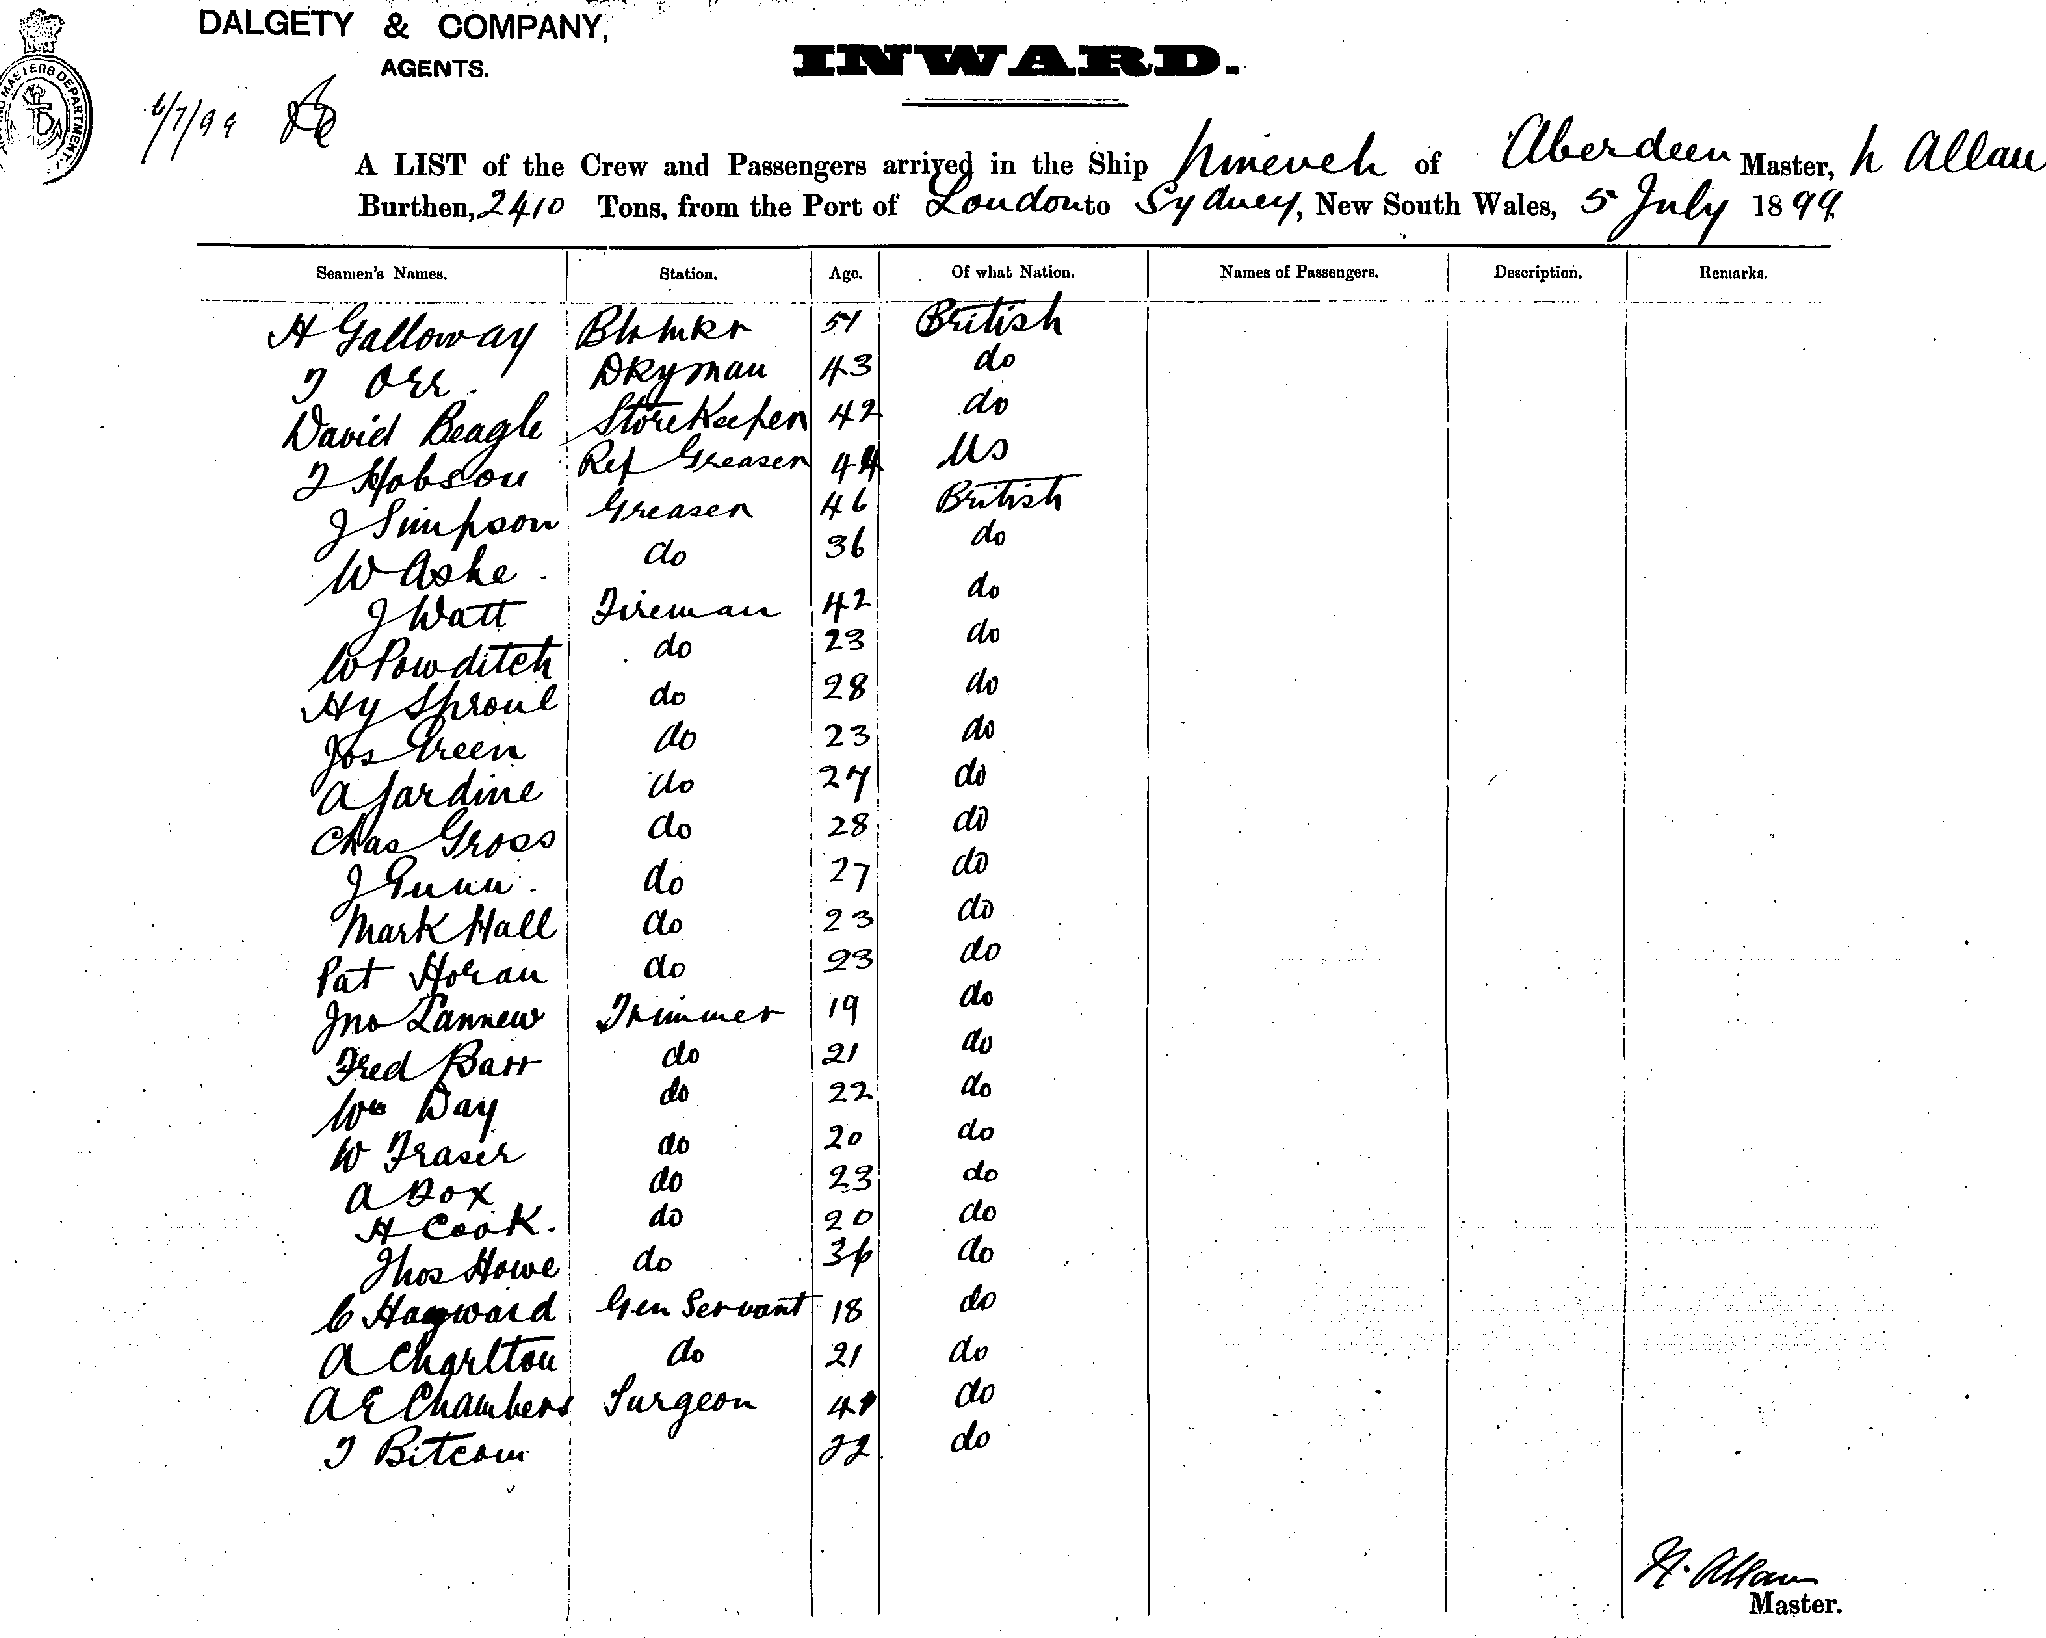 DALGETY & COMPANY,
AGENTS.
INWARD.
6/7/99
A LIST of the Crew and Passengers arrived in the Ship Nineveh of Aberdeen Master, N Allan
Burthen, 2410 Tons, from the Port of London to Sydney, New South Wales, 5 July 1899
Seamen's Names. Station. Age. Of what Nation. Names of Passengers. Description. Remarks.
H Galloway 51 British
T Orr. Dkyman 43 do
David Beagle Storekeeper 42 do
T Hobson Ref Greaser 44 US
J Simpson Greaser 46 British
W Ashe do 36 do
J Watt Fireman 42 do
W Powditch do 23 do
Hy Sproul do 28 do
Jos Green do 23 do
A Jardine do 27 do
Chas Gross do 28 do
J Gunn. do 27 do
Mark Hall do 23 do
Pat Horan do 23 do
Jno Lannew Trimmer 19 do
Fred Barr do 21 do
Wm Day do 22 do
W Fraser do 20 do
A Dox do 23 do
H Cook. do 20 do
Thos Howe do 36 do
C Hayward Gen Servant 18 do
A Charlton do 21 do
A E Chambers Surgeon 41 do
T Bitcom 22 do
N. Allan
Master.